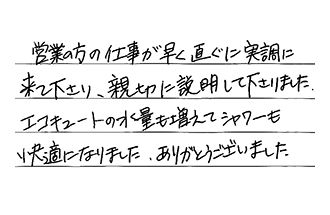 営業の方の仕事が早く直ぐに実調に
来て下さり、親切に説明して下さりました.
エコキュートの水量も増えてシャワーも
快適になりました.ありがとうございました